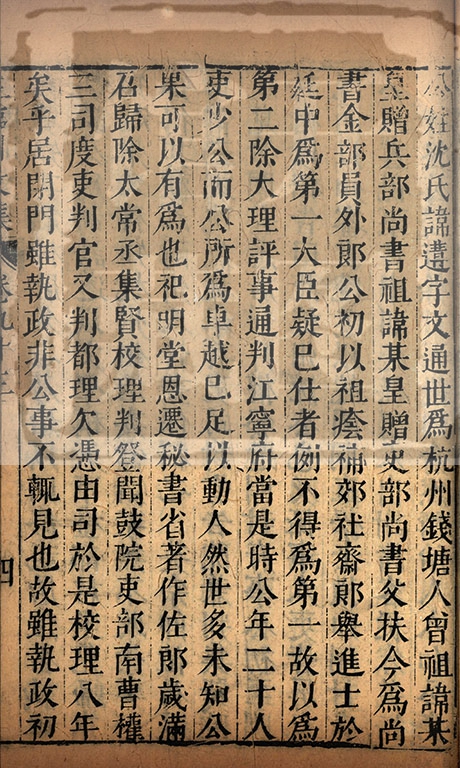 公姓沈氏諱遘字文通世爲杭州錢塘人曾祖諱某
皇贈兵部尚書祖諱某皇贈吏部尚書父扶今爲尚
書金部員外郎公初以祖䕃補郊社齋郎舉進士於
廷中爲第一大臣疑巳仕者例不得爲第一故以爲
第二除大理評事通判江寧府當是時公年二十人
吏少公而公所爲卓越巳足以動人然世多未知公
果可以有爲也祀明堂恩遷秘書省著作佐郎歲滿
召歸除太常丞集賢校理判登聞鼓院吏部南曹權
三司度支判官又判都理欠憑由司於是校理八年
矣平居閉門雖執政非公事不輒見也故雖執政初
文集 卷九十三 四